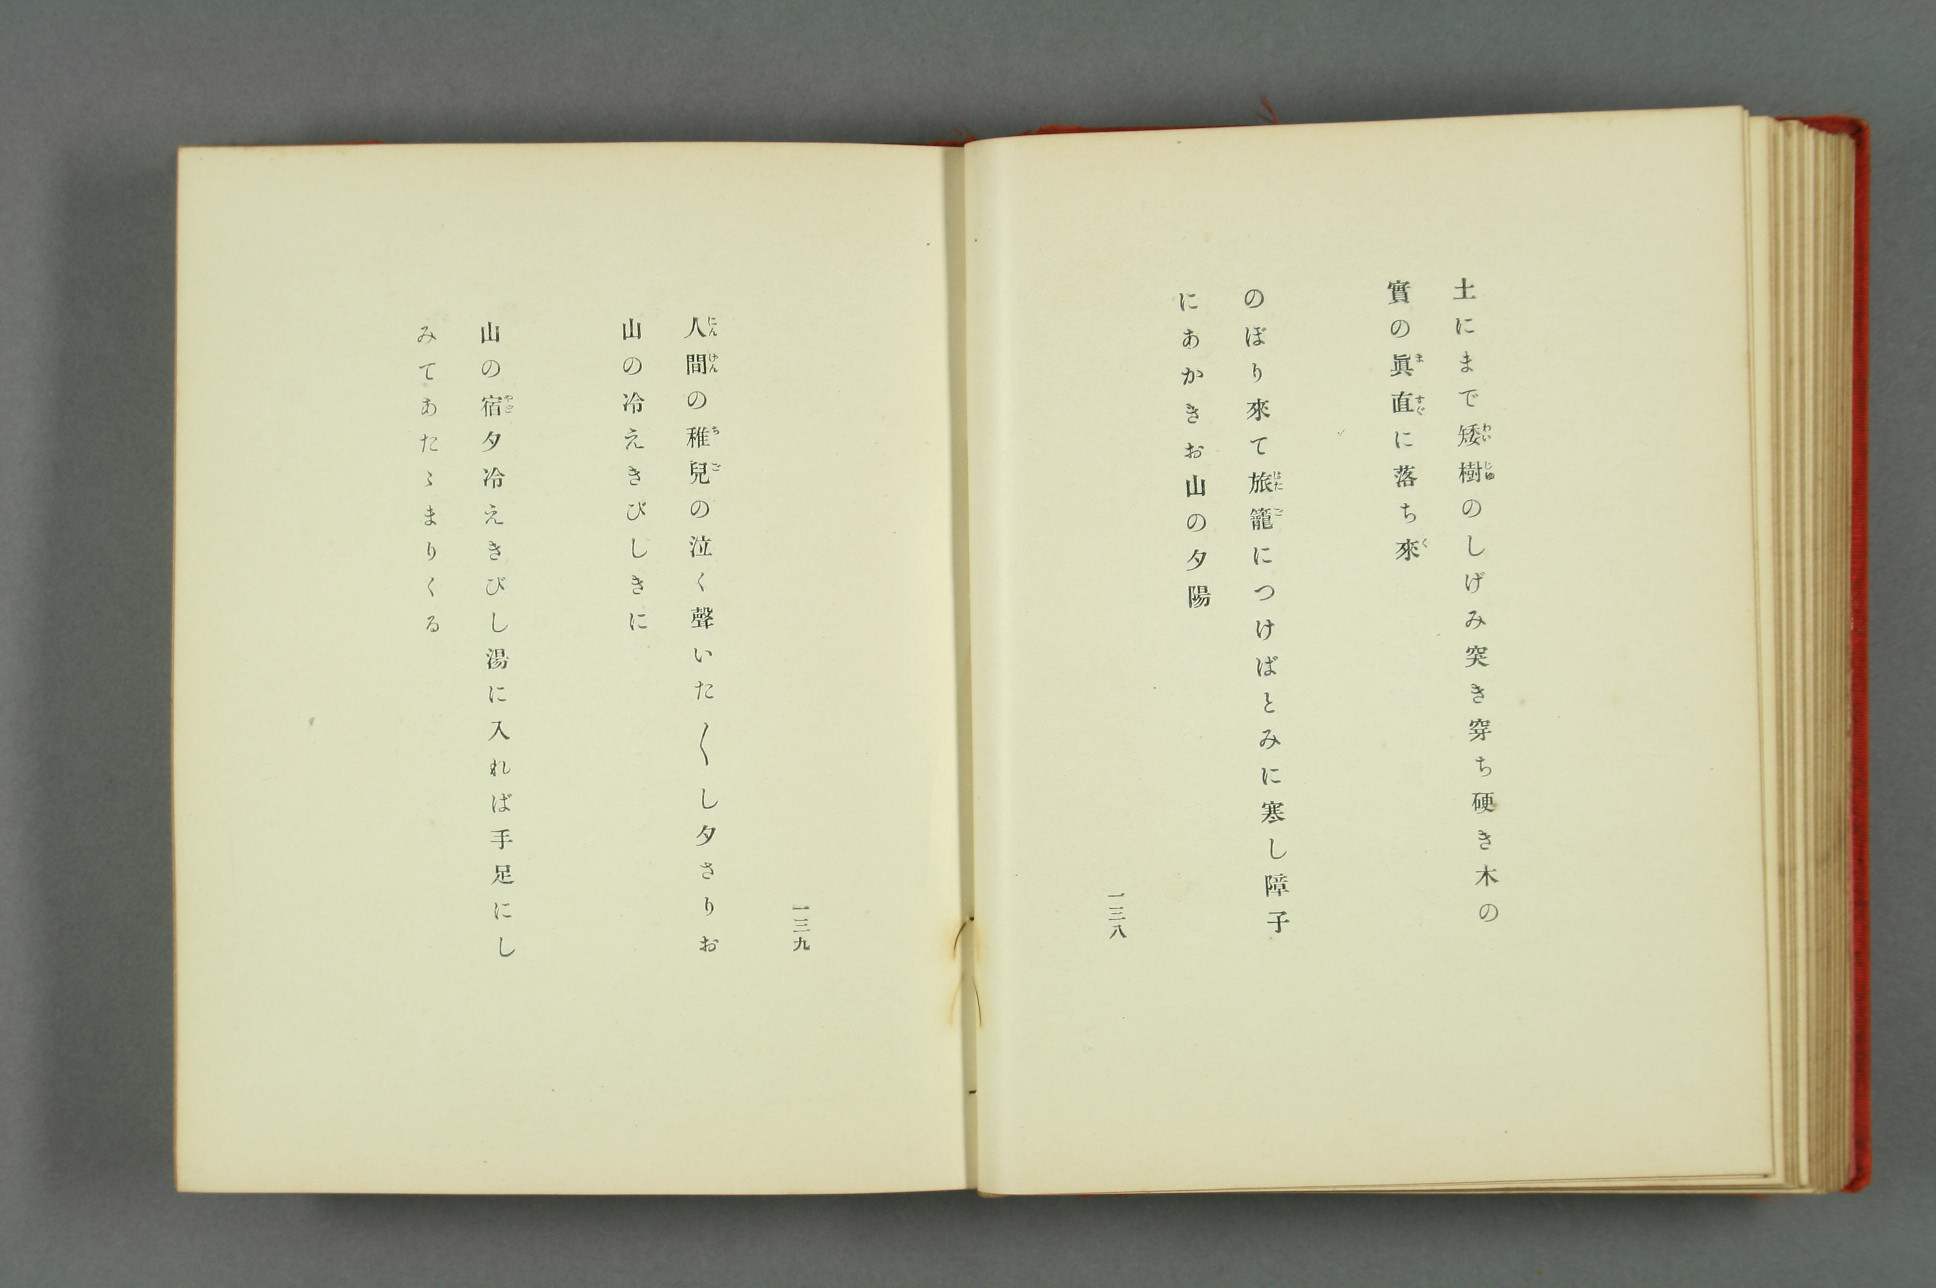 土にまで矮樹のしげみ突き穿ち硬き木の
實の眞直に落ち來
のぼり來て旅籠につけばとみに寒し障子
にあかきお山の夕陽
一三八
人間の稚兒の泣く聲いた〱し夕さりお
山の冷えきびしきに
山の宿夕冷えきびし湯に入れば手足にし
みてあたゝまりくる
一三九